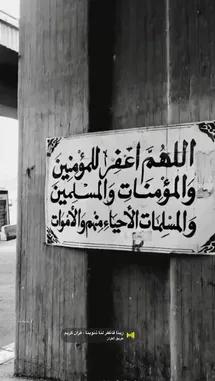 اللهُمَّ اغْفِر للمؤمنِين
والمؤمنات والمسلمين
والمسلمات الأحياء منهم والأموات
ربنا فاغفر لنا ذنوبنا - قران كريم